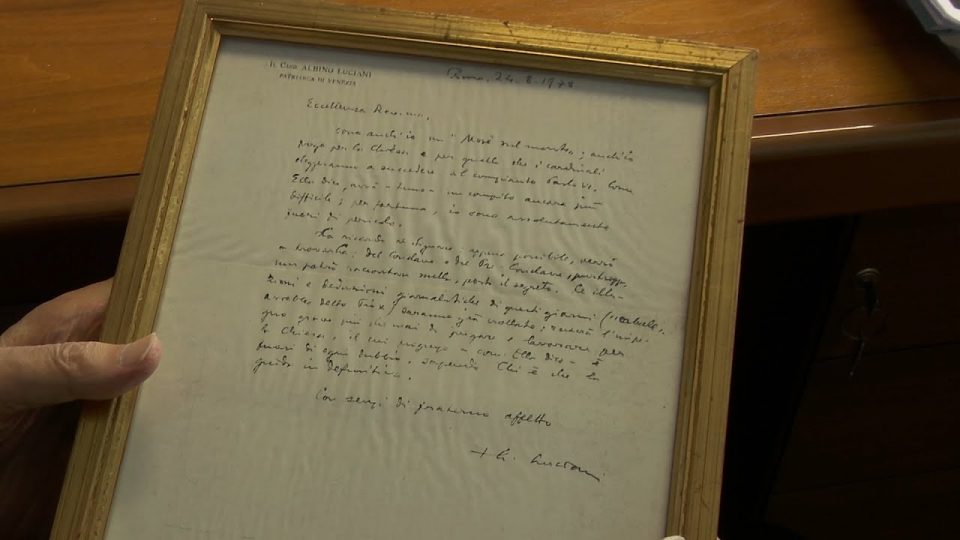 IL CARD. ALBINO LUCIANI
PATRIARCA DI VENEZIA
Roma, 24. 8. 1978
Eccellenza Rev.ma,
sono anch'io un "Mosè sul monte"; anch'io
prego per la Chiesa e per quello che i cardinali
a succedere al compianto Pastore. Come
Ella dice, avrà un compito ancora più
difficile; per fortuna, io sono assolutamente
fuori di pericolo.
La ricordo al Signore. appena possibile, verrò
a trovarla: del Conclave e del Pre Conclave, purtroppo,
non potrò raccontare nulla, il segreto. Le
e giornalistiche di questi giorni
saranno già crollate; resterà l'impe-
gno grave più che mai di pregare e lavorare per
la Chiesa, il cui è - come Ella dice - è
fuori di ogni dubbio, sapendo Chi è che la
guida in definitiva.
Con sensi di fraterno affetto
+ A. Luciani